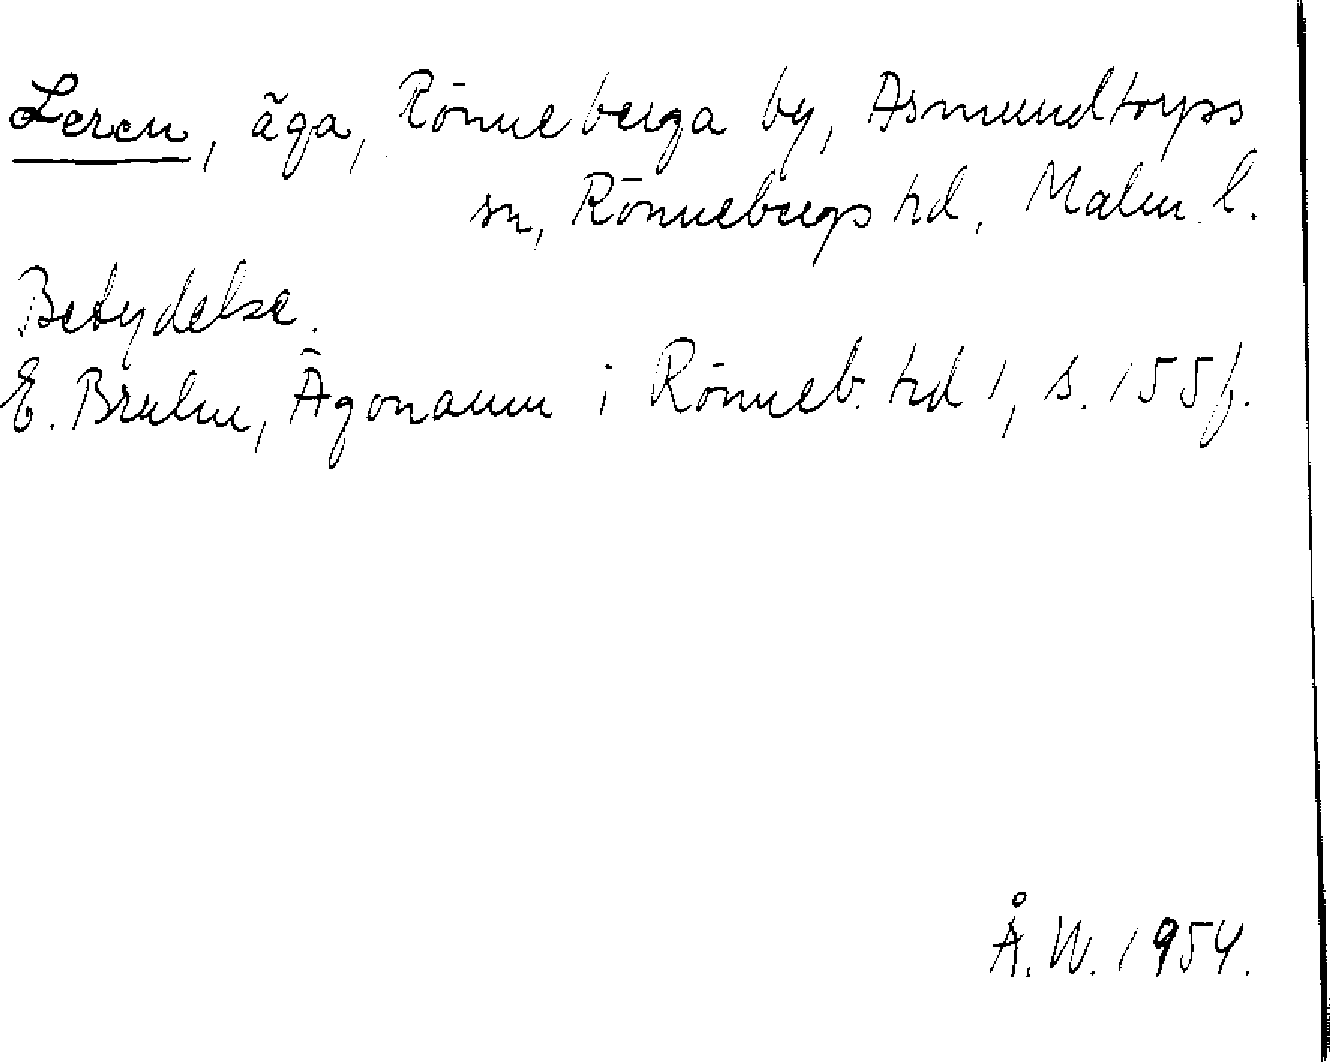 Leren, äga, Rönneberga by, Asmundtorps
sn, Rönnebergs hd, Malm. l.
Betydelse.
E. Bruhn, Ägonamn i Rönneb. hd 1, s. 155f.
Å. W. 1954.